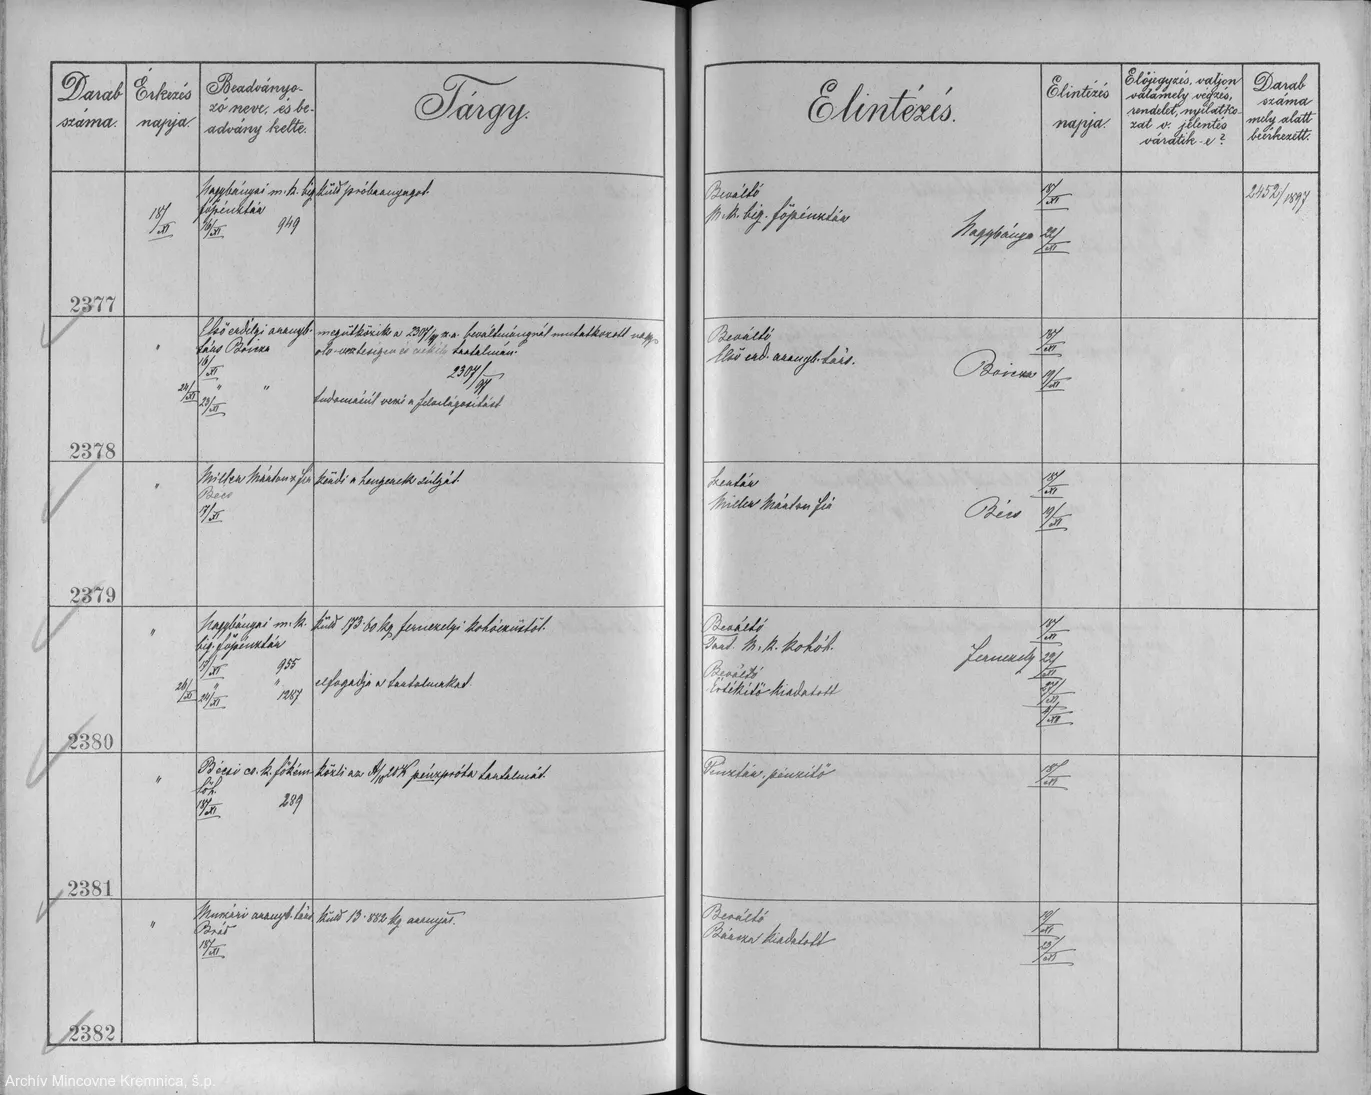 Darab száma.
Érkezés napja.
Beadványo-
zó neve, és be-
advány kelte.
Tárgy.
Elintézés.
Elintézés napja.
Előjegyzés, valjon
valamely végzés,
rendelet, nyilatko-
zat v. jelentés
váratik-e?
Darab
száma
mely alatt
beérkezett.
2377
18/XI
Nagybányai m. k. big
főpénztár
16/XI 949
küld próbaanyagot.
Beváltó
M. k. big. főpénztár
Nagybánya
18/XI
22/XI
2452/1897
2378
"
Első erdélyi aranyb.
társ Boicza
16/XI
24/XI " "
23/XI
megütközik a 2307/ beváltmánynál mutatkozott nagy
tartalmán.
2307/97
tudomásul veszi a felvilágosítást
Beváltó
Első erd. aranyb. társ.
Boicza
18/XI
19/XI
2379
"
Miller Márton s fia
Bécs
17/XI
kérdi a hengerek súlyát.
Miller Márton fia
Bécs
18/XI
19/XI
2380
"
Nagybányai m. k.
big. főpénztár
17/XI 955
26/XI " "
24/XI 1287
küld 173·60 kg fernezelyi kohóezüstöt.
elfogadja a tartalmakat.
Beváltó
M. k. kohóh.
Fernezely
Beváltó
Értékítő kiadatott
18/XI
22/XI
27/XI
2381
"
Bécsi cs. k. főkém-
löh.
18/XI 289
közli az 20 K pénzpróba tartalmát.
Pénztár, pénzítő
18/XI
2382
"
Muszári aranyb. társ
Brád
18/XI
küld 13·882 kg aranyat.
Beváltó
kiadatott
19/XI
Archív Mincovne Kremnica, š.p.